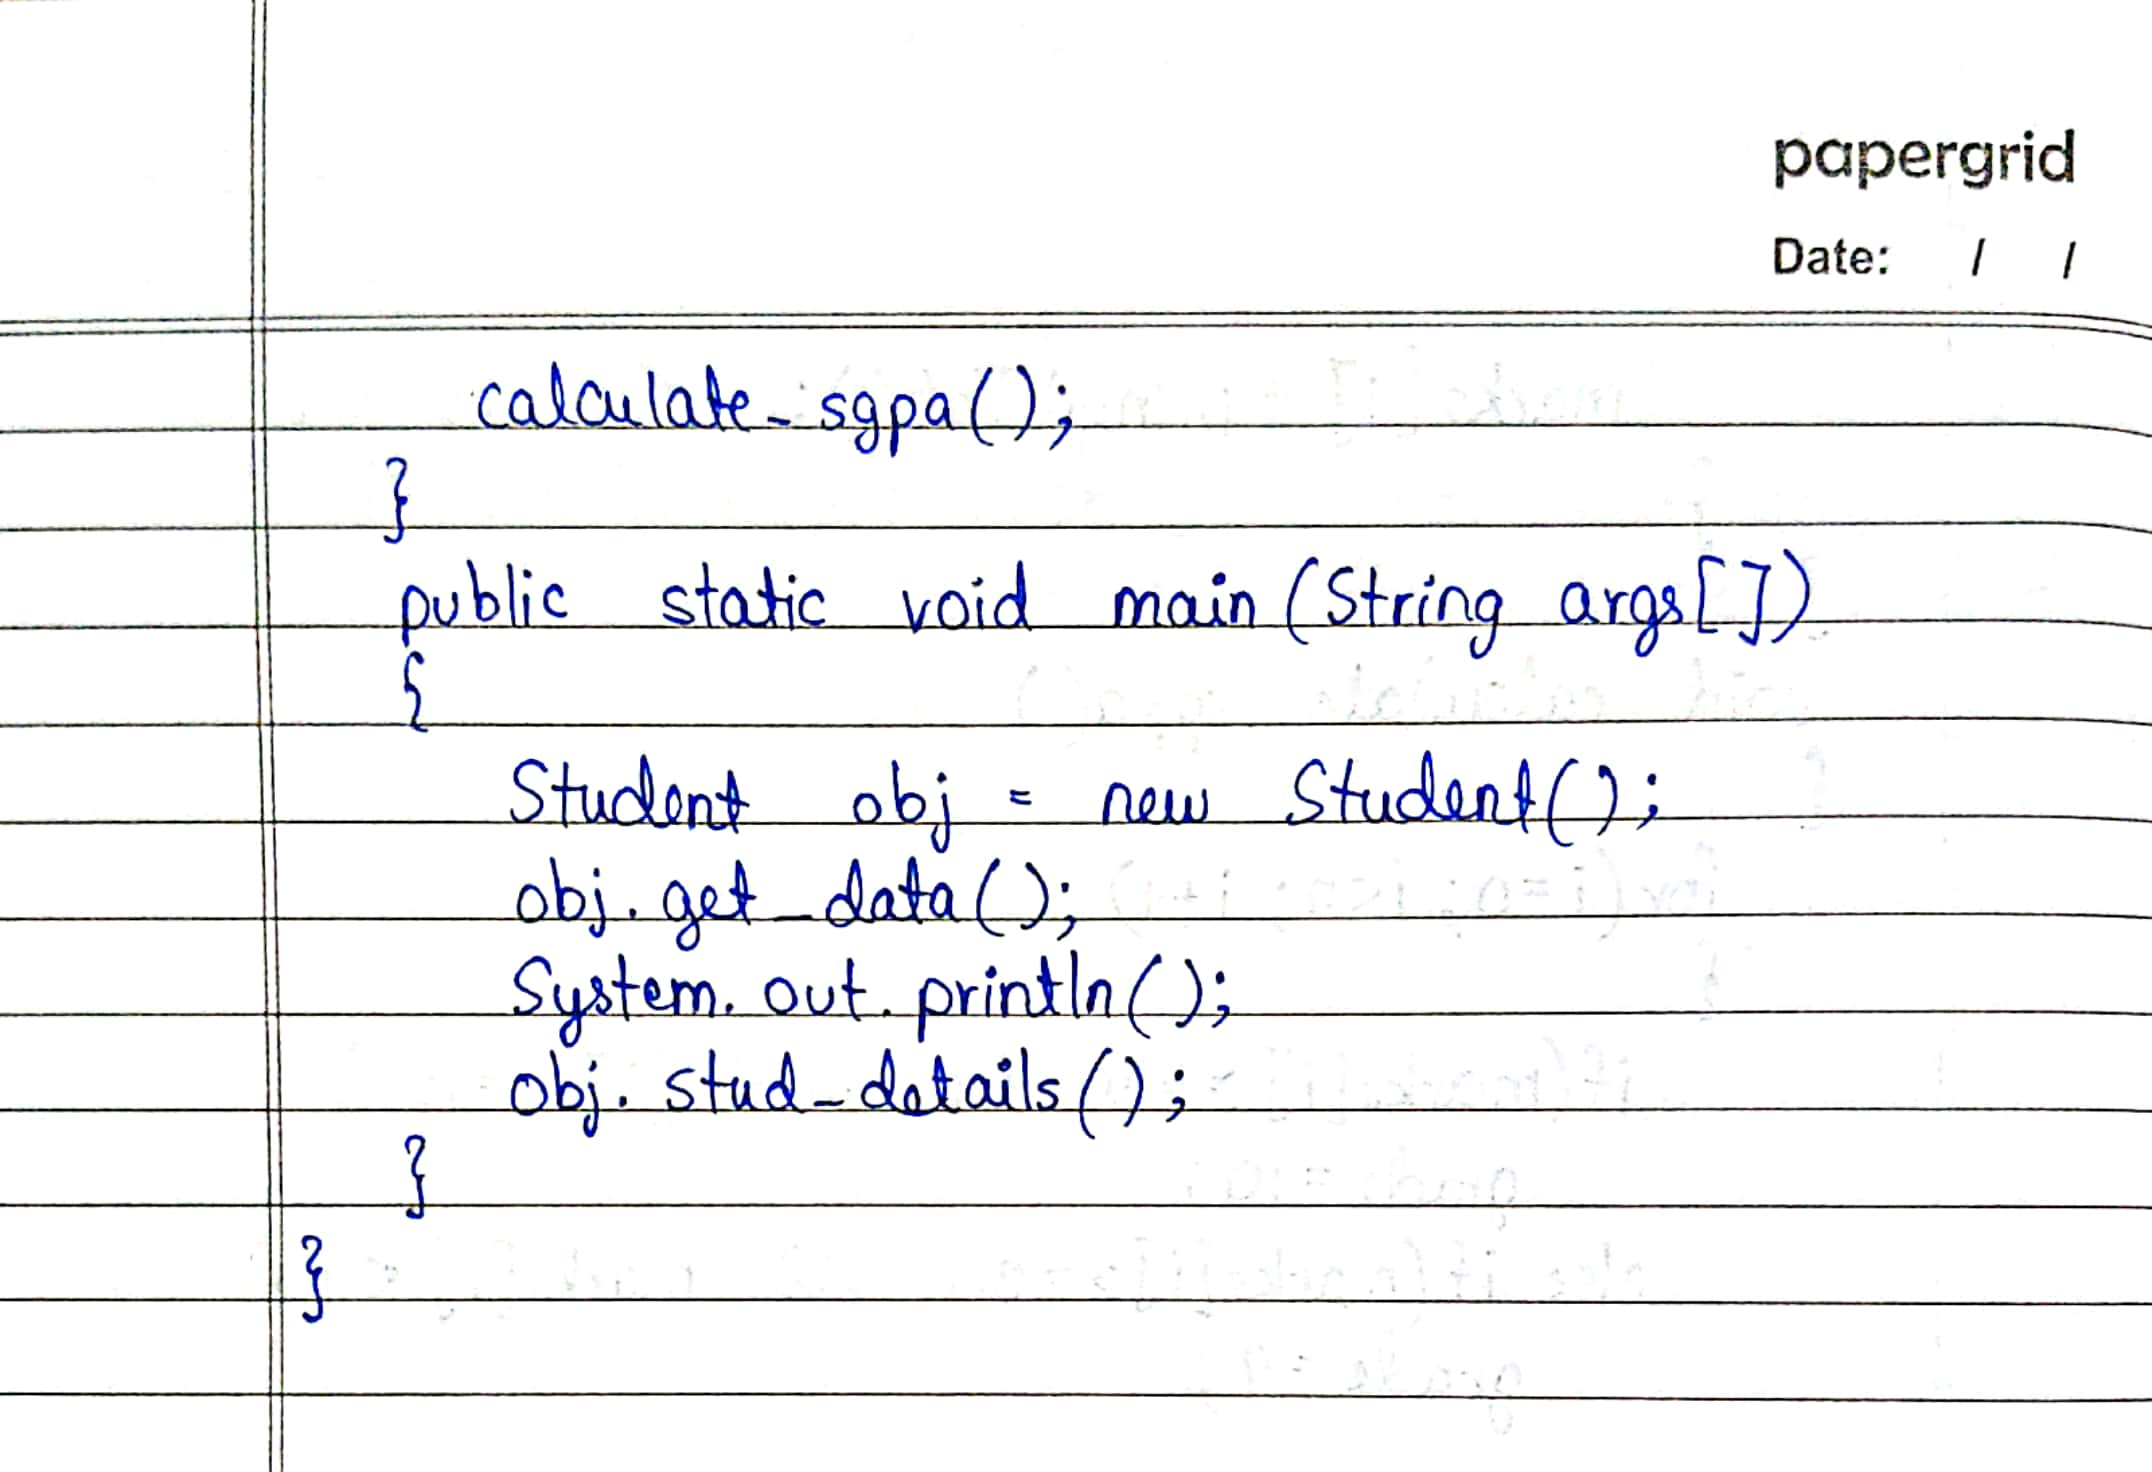 papergrid
Date: / /
calculate_sgpa();
}
public static void main (String args[])
{
Student obj = new Student();
obj. get_data();
System. out. println();
obj. stud_details();
}
}